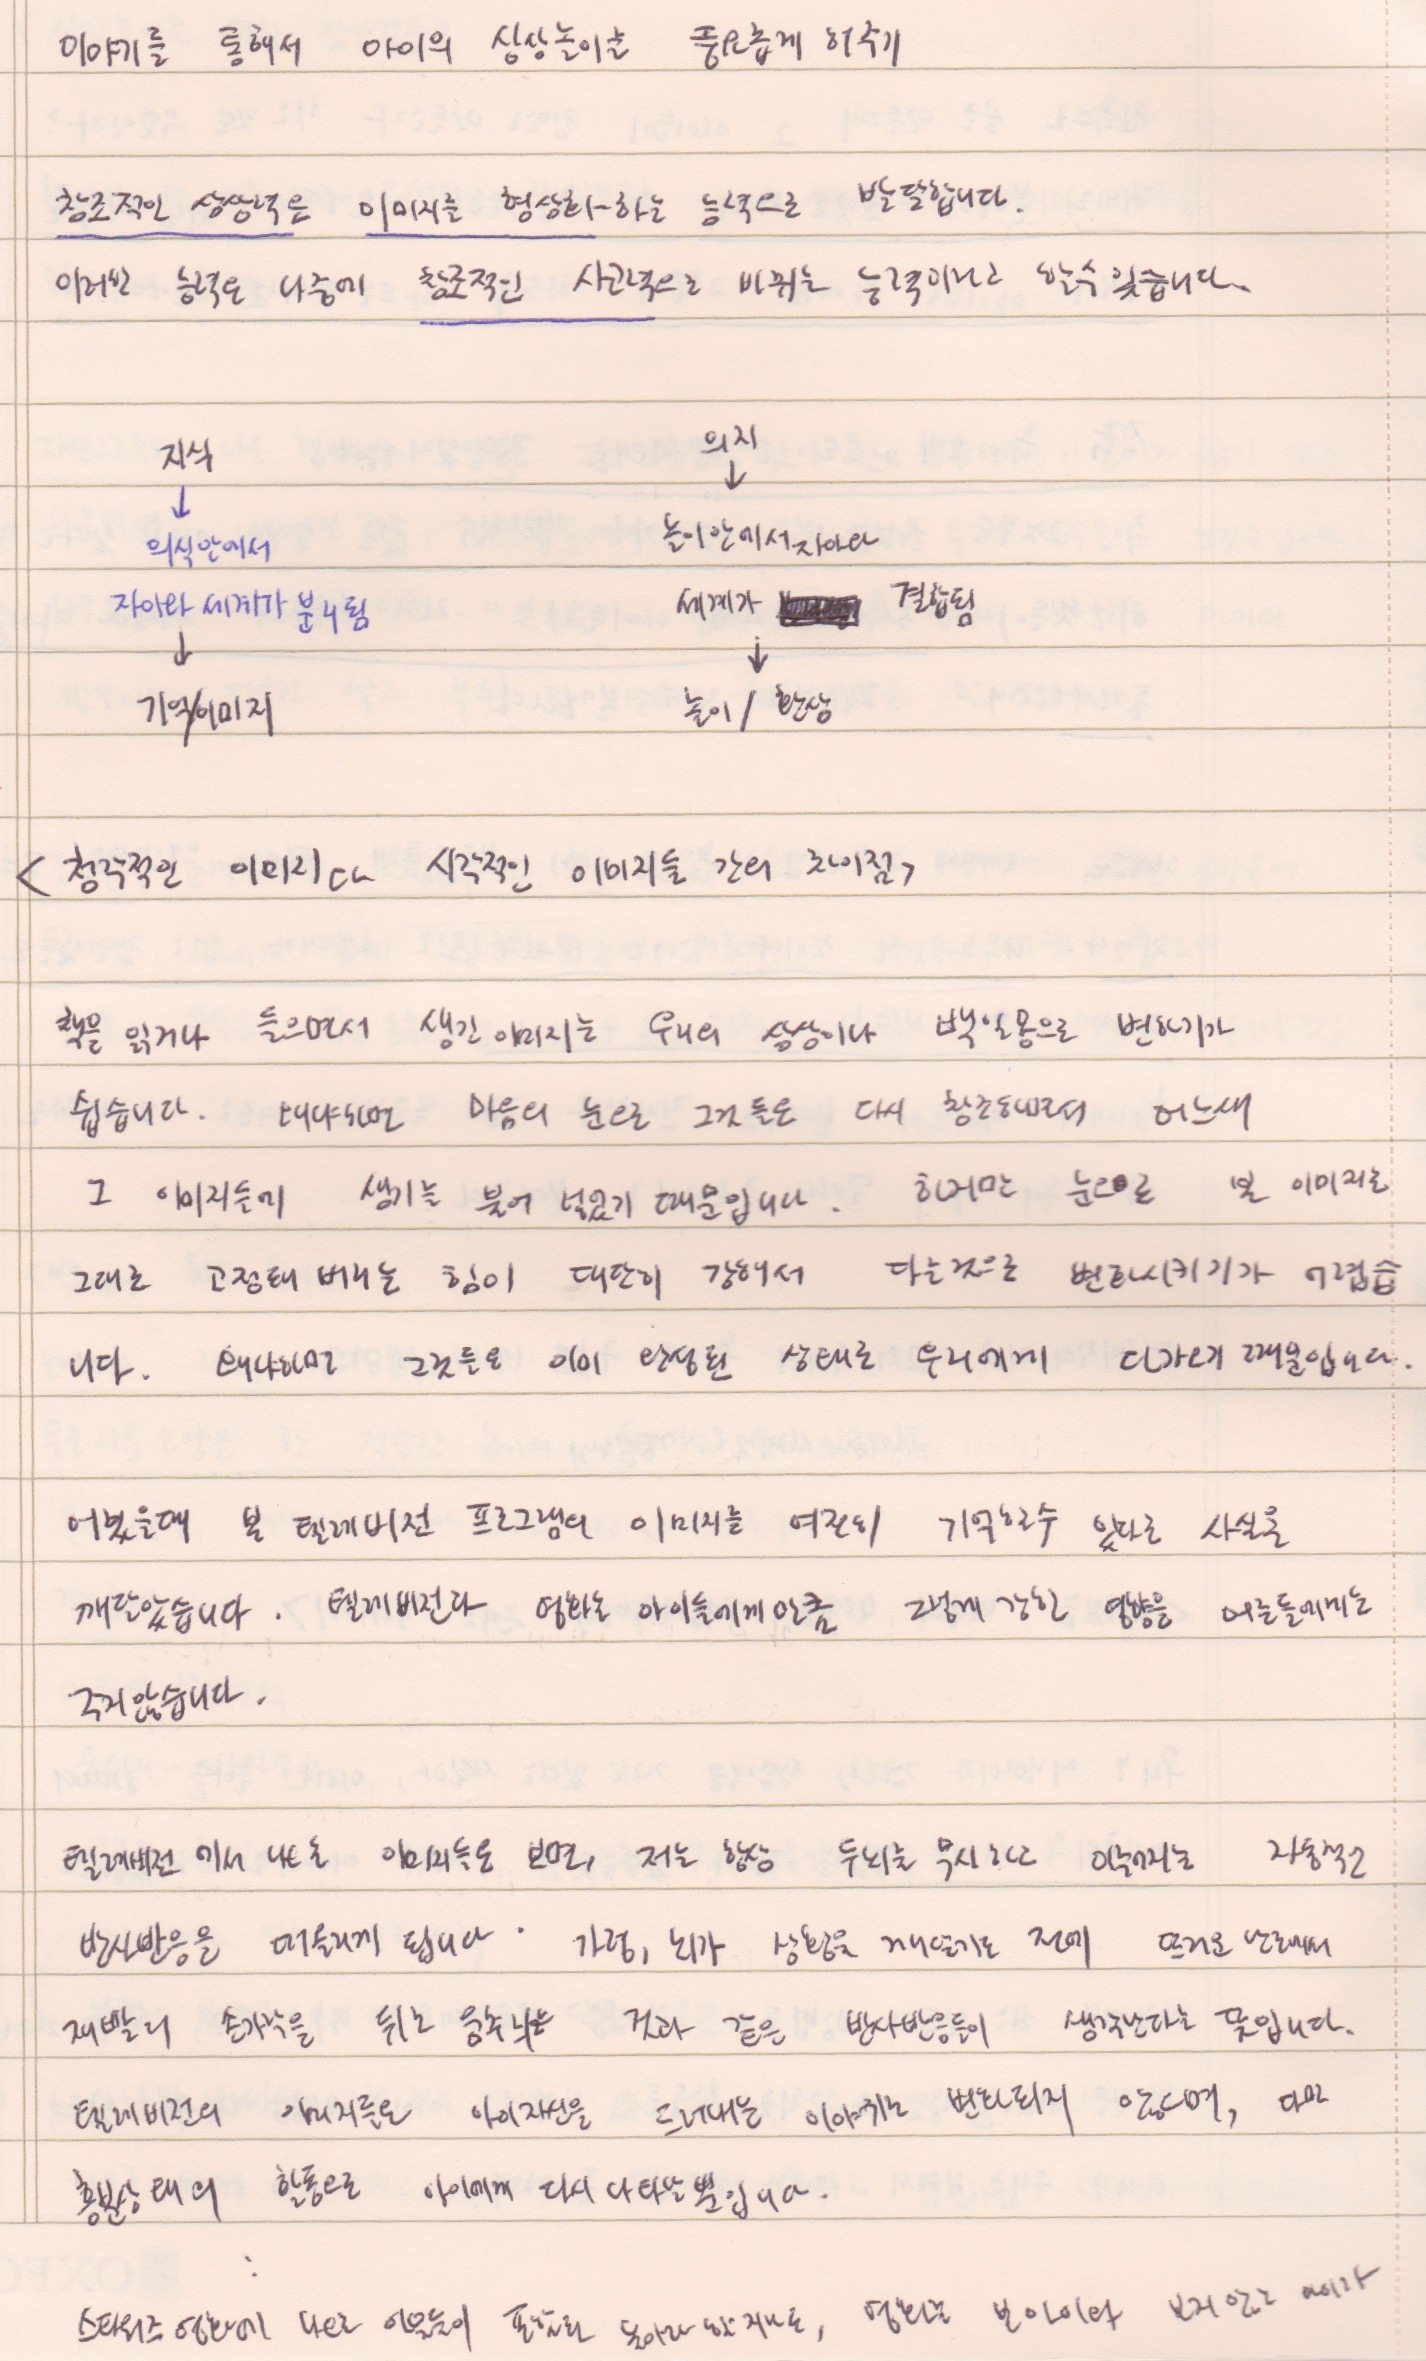 이야기를 통해서 아이의 상상놀이를 풍요롭게 해주기
창조적인 상상력은 이미지를 형상화-하는 능력으로 발달합니다.
이러한 능력은 나중에 창조적인 사고력으로 바뀌는 능력이라고 할수 있습니다.
지식 의지
↓ ↓
의식안에서 놀이안에서 자아와
자아와 세계가 분리됨 세계가 결합됨
↓ ↓
기억/이미지 놀이/환상
<청각적인 이미지와 시각적인 이미지들 간의 차이점>
책을 읽거나 들으면서 생긴 이미지는 우리의 상상이나 백일몽으로 변하기가
쉽습니다. 왜냐하면 마음의 눈으로 그것들은 다시 창조하면서 어느새
그 이미지들에 생기를 불어 넣었기 때문입니다. 하지만 눈으로 본 이미지를
그대로 고정해 버리는 힘이 대단히 강해서 다른것으로 변화시키기가 어렵습
니다. 왜냐하면 그것들은 이미 완성된 상태로 우리에게 다가오기 때문입니다.
어렸을때 본 텔레비전 프로그램의 이미지를 여전히 기억할수 있다는 사실을
깨달았습니다. 텔레비전과 영화는 아이들에게만큼 그렇게 강한 영향을 어른들에게는
주지않습니다.
텔레비전에서 나오는 이미지들을 보면, 저는 항상 두뇌를 무시하고 이뤄지는 자동적인
반사반응을 떠올리게 됩니다. 가령, 뇌가 상황을 깨닫기도 전에 뜨거운 난로에서
재빨리 손가락을 뒤로 움츠리는 것과 같은 반사반응들이 생각난다는 뜻입니다.
텔레비전의 이미지들은 아이자신을 드러내는 이야기로 변화되지 않으며, 다만
흥분상태의 활동으로 아이에게 다시 나타날 뿐입니다.
:
스타워즈 영화에 나오는 인물들이 영화를 본 아이와 보지 않은 아이가